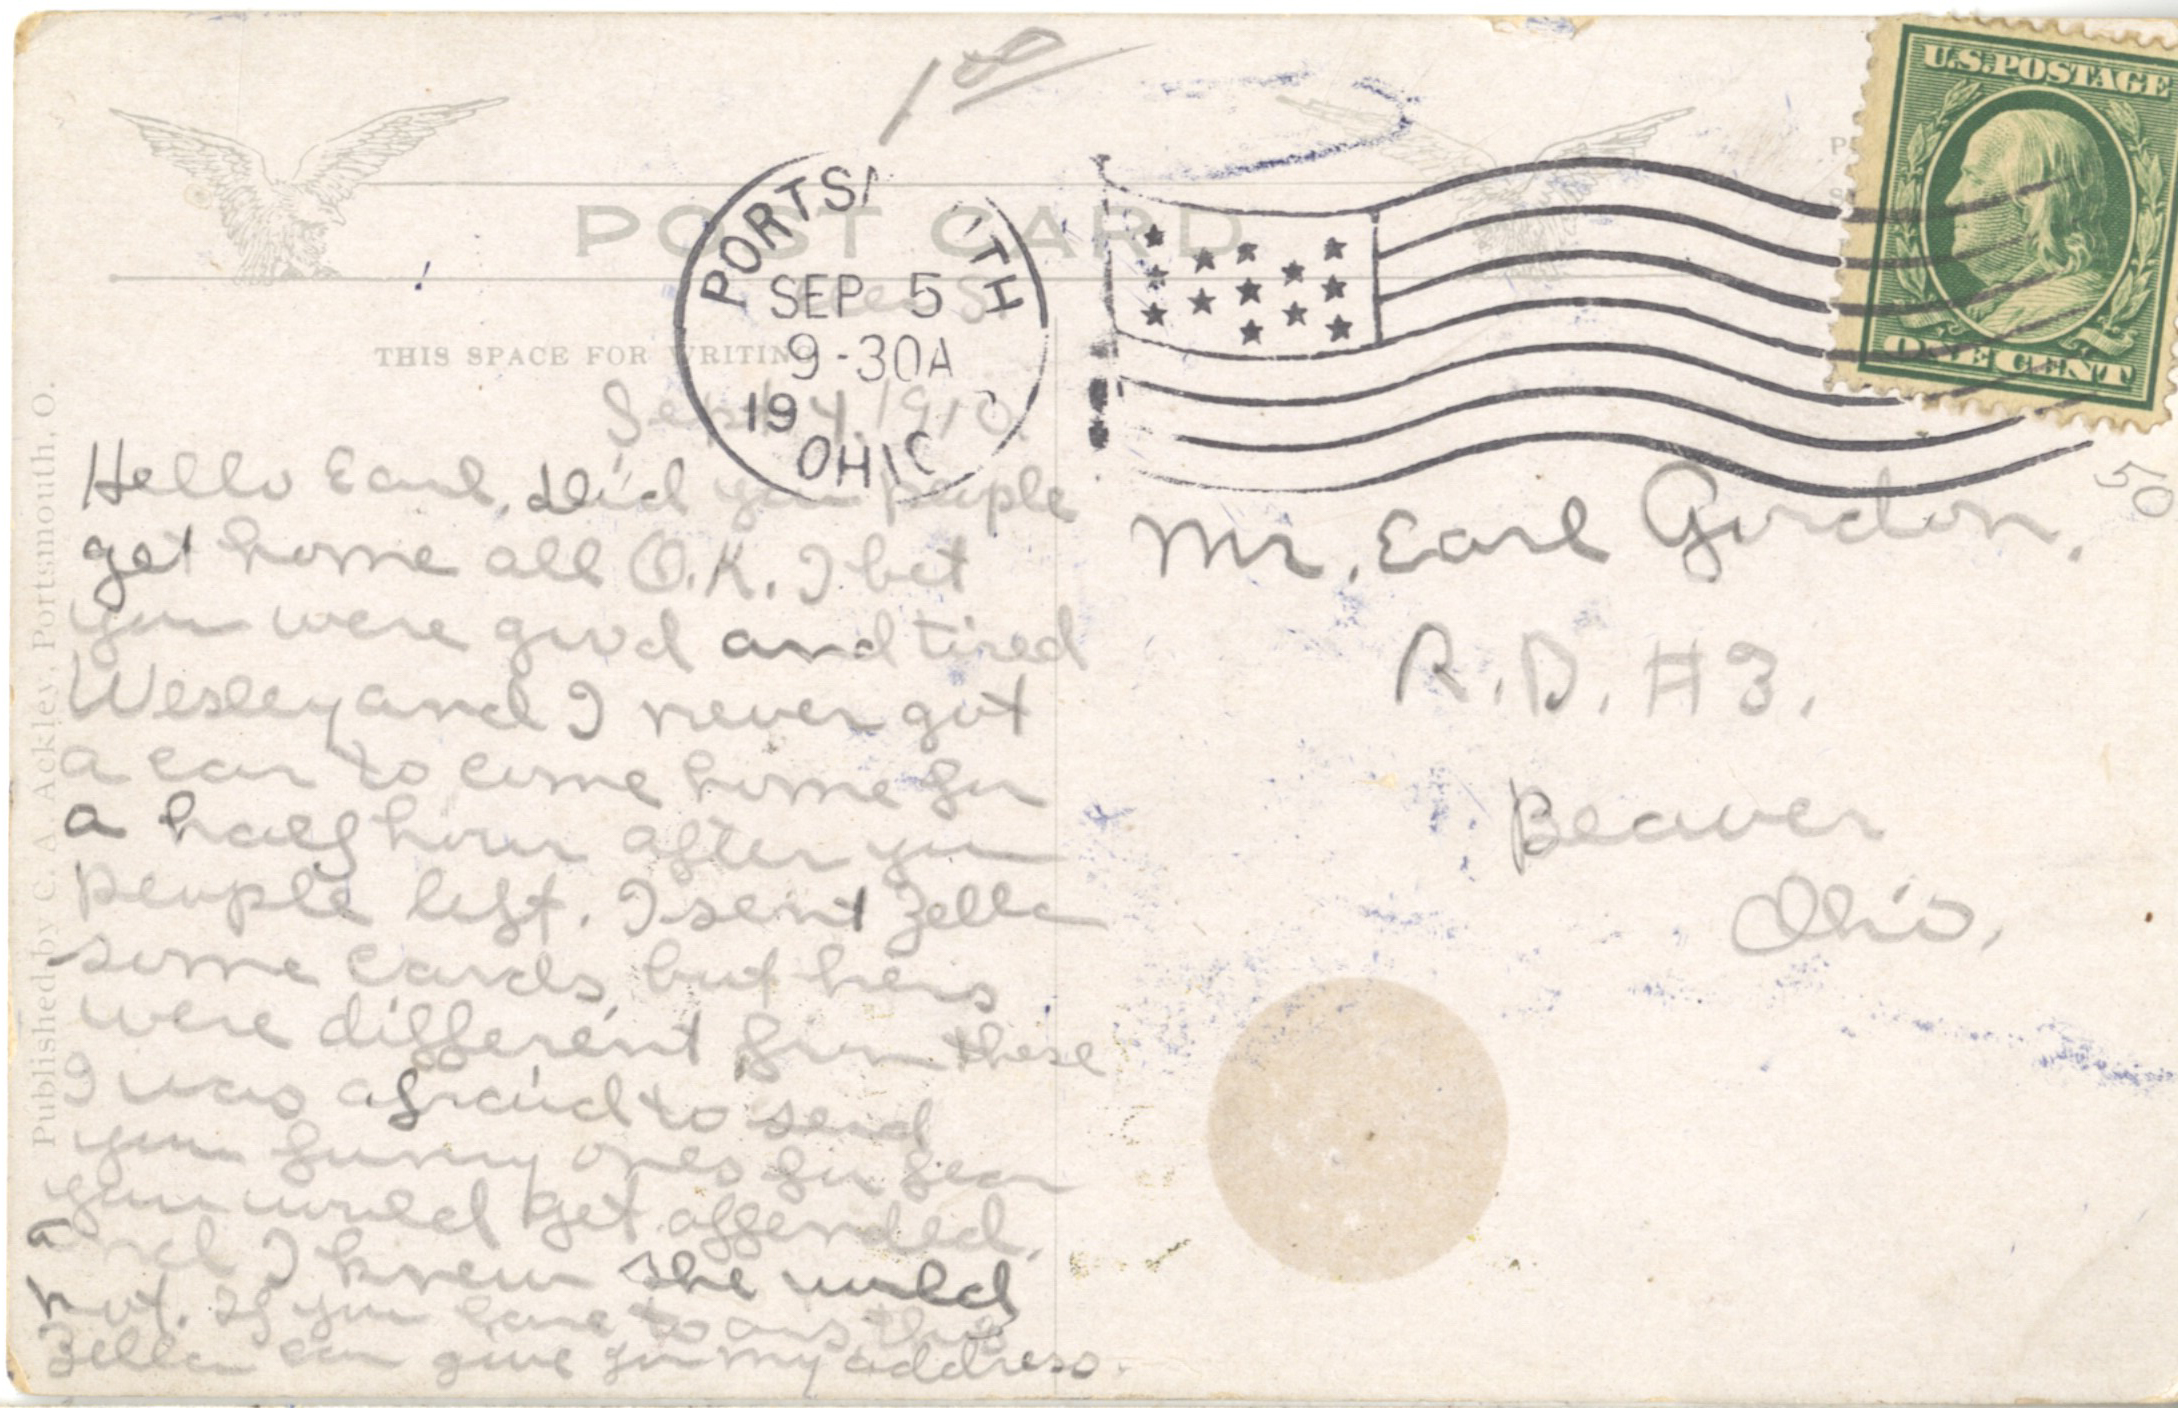 1 00
U.S. POSTAGE
ONE CENT
POST CARD
PORTSM TH
SEP 5
9-30A
19
OHIO
THIS SPACE FOR WRITING
Sept 4, 1910.
Hello Earl, Did you people
get home all O.K. I bet
you were good and tired
Wesley and I never got
a car to come home for
a half hour after you
people left. I sent Zella
some cards, but hers
were different from these
I was afraid to send
you funny ones for fear
you would get offended,
and I knew she would
not. If you care to ans this
Zella can give you my address.
50
Mr. Earl Gordon.
R.D. #3.
Beaver
Ohio.
Published by C. A. Ackley, Portsmouth, O.